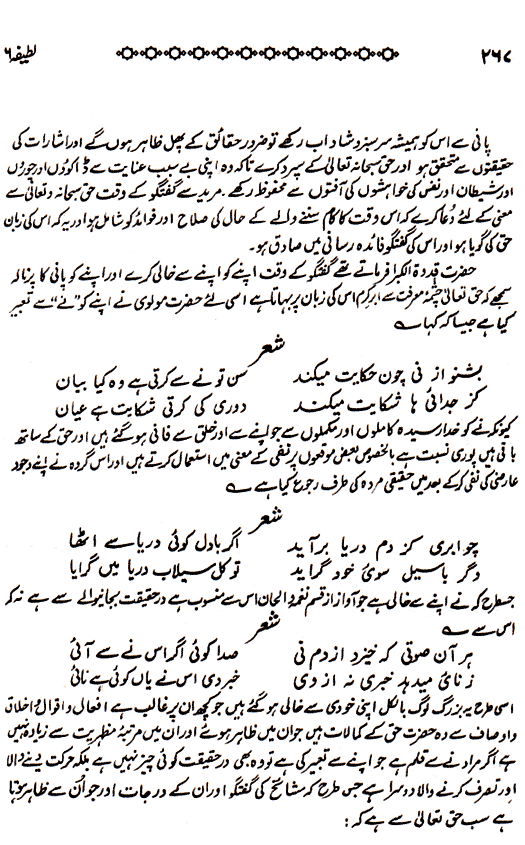 ۲۶۷ لطیفہ ۶
پانی سے اس کو ہمیشہ سرسبز و شاداب رکھے تو ضرور حقائق کے پھل ظاہر ہوں گے اور اشارات کی
حقیقتوں سے متحقق ہو اور حق سبحانہ تعالیٰ کے سپرد کرے تاکہ وہ اپنی بے سبب عنایت سے ڈاکوؤں اور چوروں
اور شیطان اور نفس کی خواہشوں کی آفتوں سے محفوظ رکھے۔ مرید سے گفتگو کے وقت حق سبحانہ و تعالیٰ سے
معنی کے لئے دُعا کرے کہ اس وقت کا کام سننے والے کے حال کی صلاح اور فوائد کو شامل ہو اور یہ کہ اس کی زبان
حق کی گویا ہو اور اس کی گفتگو فائدہ رسانی میں صادق ہو۔
حضرت قدوۃ الکبرا فرماتے تھے گفتگو کے وقت اپنے کو اپنے سے خالی کرے اور اپنے کو پانی کا پرنالہ
سمجھے کہ حق تعالیٰ چشمۂ معرفت سے ابر کرم اس کی زبان پر بہاتا ہے اسی لئے حضرت مولوی نے اپنے کو "نے" سے تعبیر
کیا ہے جیسا کہ کہا ؎
شعر
بشنو از نی چون حکایت میکند سن تو نے سے کرتی ہے وہ کیا بیان
کز جدائی ہا شکایت میکند دوری کی کرتی شکایت ہے عیان
کیونکہ نے کو خدا رسیدہ کاملوں اور مکملوں سے جو اپنے سے اور خلق سے فانی ہو گئے ہیں اور حق کے ساتھ
باقی ہیں پوری نسبت ہے بالخصوص بعض موقعوں پر نفی کے معنی میں استعمال کرتے ہیں اور اس گروہ نے اپنے وجود
عارضی کی نفی کر کے بعد میں حقیقی مردہ کی طرف رجوع کیا ہے ؎
شعر
چو ابری کز دم دریا برآید اگر بادل کوئی دریا سے اٹھا
دگر باسیل سوئ خود گراید تو کل سیلاب دریا میں گرایا
جسطرح کہ نے اپنے سے خالی ہے جو آواز از قسم نغمہ و الحان اس سے منسوب ہے در حقیقت بجانیوالے سے ہے نہ کہ
اس سے ؎
شعر
ہر آن صوتی کہ خیزد از دم نی صدا کوئی اگر اس نے سے آئی
ز نائ میدہد خبری نہ از وی خبر دی اس نے یاں کوئی ہے نائی
اسی طرح یہ بزرگ لوگ بالکل اپنی خودی سے خالی ہو گئے ہیں جو کچھ ان پر غالب ہے افعال و اقوال و اخلاق
و اوصاف سے وہ حضرت حق کے کمالات ہیں جو ان میں ظاہر ہوئے اور ان میں مرتبۂ مظہریت سے زیادہ نہیں
ہے اگر مراد نے سے قلم ہے جو اپنے سے تعبیر کی ہے تو وہ بھی در حقیقت کوئی چیز نہیں ہے بلکہ حرکت دینے والا
اور تصرف کرنے والا دوسرا ہے جس طرح کہ مشائخ کی گفتگو اور ان کے درجات اور جو اُن سے ظاہر ہوتا
ہے سب حق تعالیٰ سے ہے کہ :